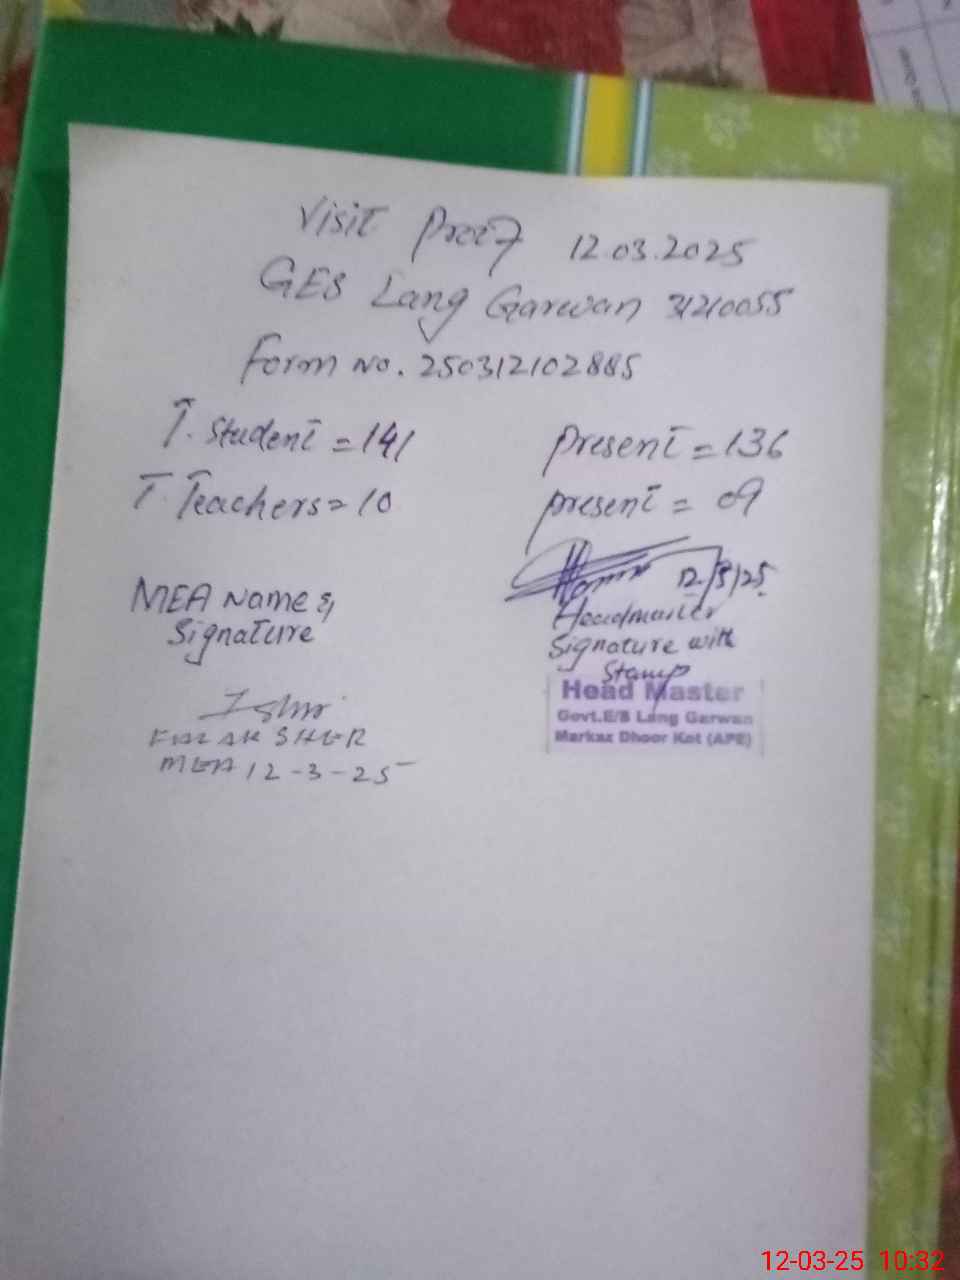 Visit Proof 12.03.2025
GES Lang Garwan 31210055
Form No. 250312102885
T. Student = 141 present = 136
T. Teachers = 10 present = 09
12/3/25
MEA Name & Signature
Headmaster Signature with Stamp
Head Master
Govt.E/S Lang Garwan
Markaz Dhoor Kot (APE)
SHER
MEA 12-3-25
12-03-25 10:32